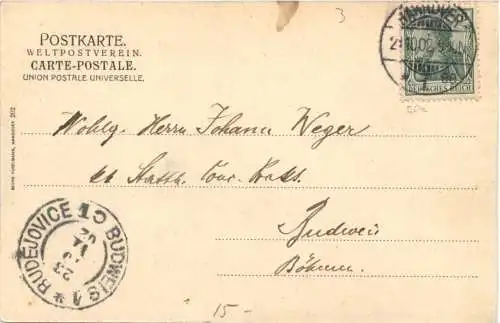 POSTKARTE.
WELTPOSTVEREIN.
CARTE-POSTALE.
UNION POSTALE UNIVERSELLE.
3
HANNOVER
21.10.02
DEUTSCHES REICH
Wohlg. Herrn Johann Weger
Budweis
Böhmen.
BUDĚJOVICE 1 BUDWEIS 1
23
02
15 -